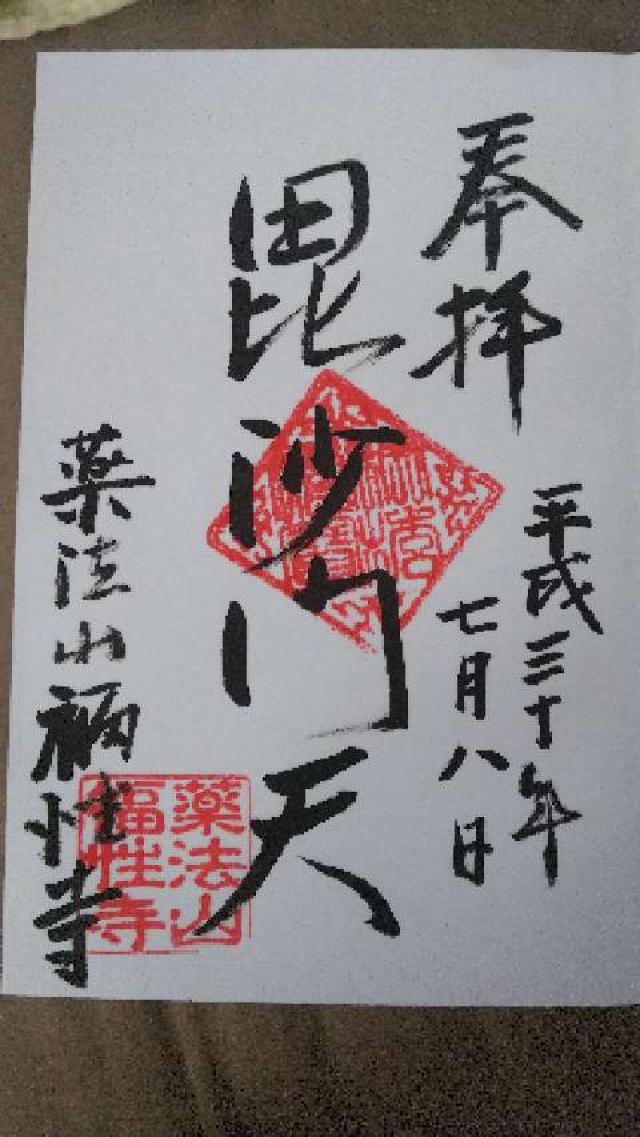 奉拝
平成三十年
七月八日
毘沙門天
薬法山福性寺
薬法山
福性寺